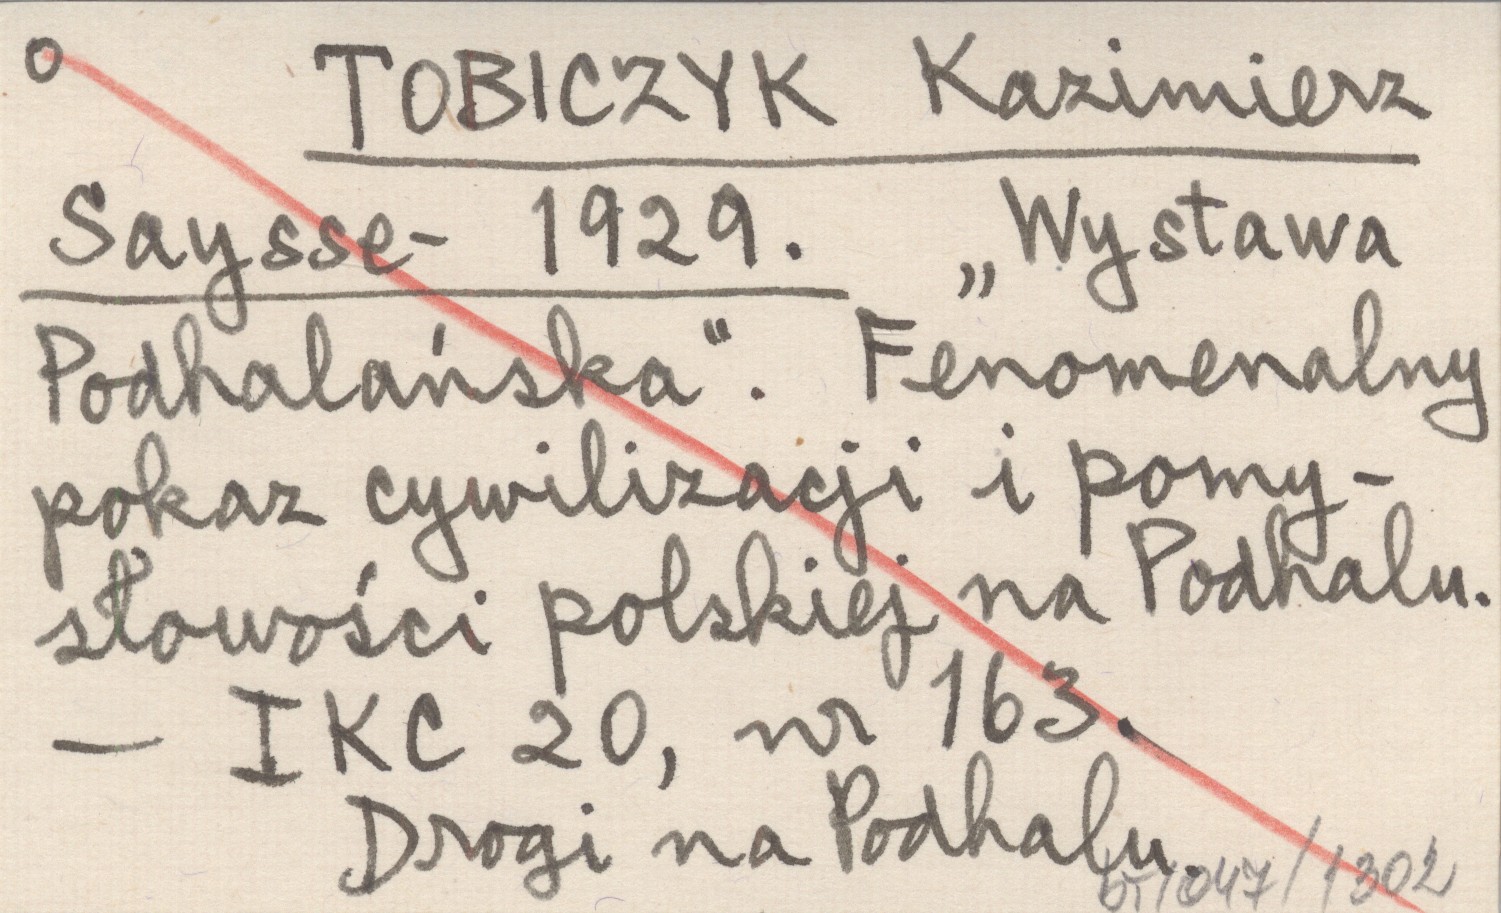 o TOBICZYK Kazimierz
Saysse- 1929. „Wystawa
Podhalańska“. Fenomenalny
pokaz cywilizacji i pomy-
słowości polskiej na Podhalu.
— IKC 20, nr 163.
Drogi na Podhalu.
/1302